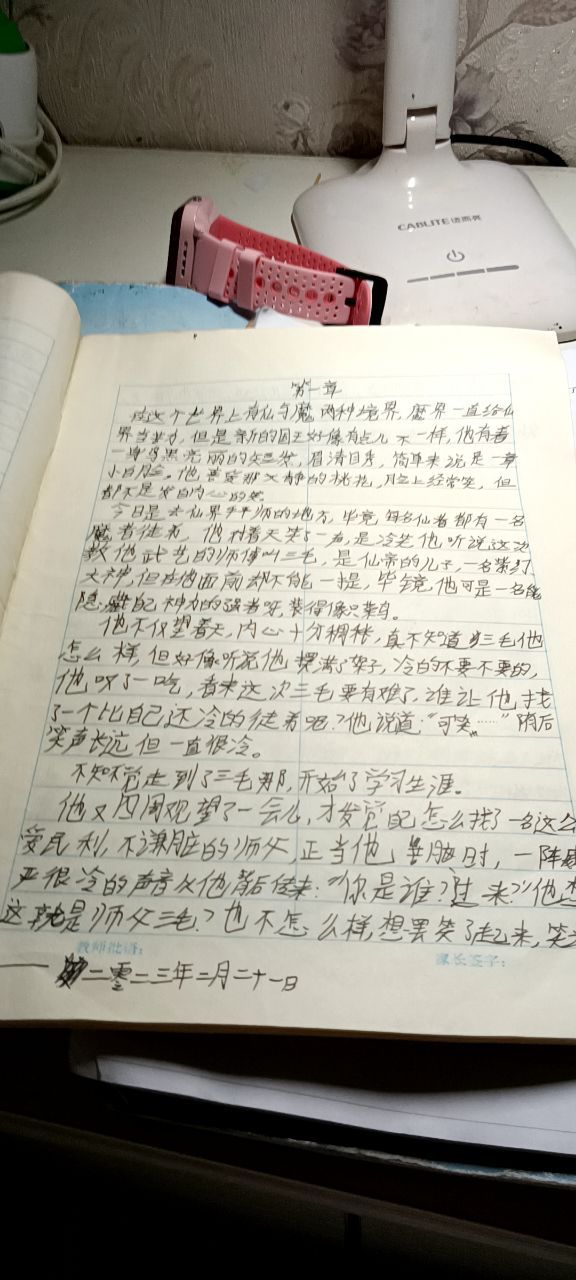 CABLITE
第一章
在这个世界上有仙与魔两种境界,魔界一直给仙
界当劳力,但是新的国王好像有点儿不一样,他有着
一身乌黑亮丽的头发,眉清目秀,简单来说是一章
小白脸。他喜欢那文静的桃花,脸上经常笑,但
都不是发自内心的笑。
今日是去仙界寻师的地方,毕竟每名仙者都有一名
魔者徒弟,他对着天笑了一声,是冷笑他听说这次
教他武艺的师傅叫三毛,是仙帝的儿子,一名
大神,但在他面前却不能一提,毕竟他可是一名能
隐藏自己神力的强者呀,装得像只菜鸟。
他不仅望着天,内心十分惆怅,真不知道三毛他
怎么样,但好像听说他摆满了架子,冷的不要不要的,
他叹了一吃,看来这次三毛要有难了,谁让他找
了一个比自己还冷的徒弟吧?他说道:“可笑……”随后
笑声长远,但一直很冷。
不知不觉走到了三毛那,开始了学习生涯。
他又四周观望了一会儿,才发觉自己怎么找了一名这么
爱民利,不谦脏的师父,正当他
严很冷的声音从他背后传来:“你是谁?过来?”他想
这就是师父三毛?也不怎么样,想罢笑了起来,笑
教师批语:
家长签字:
——二零二三年二月二十一日